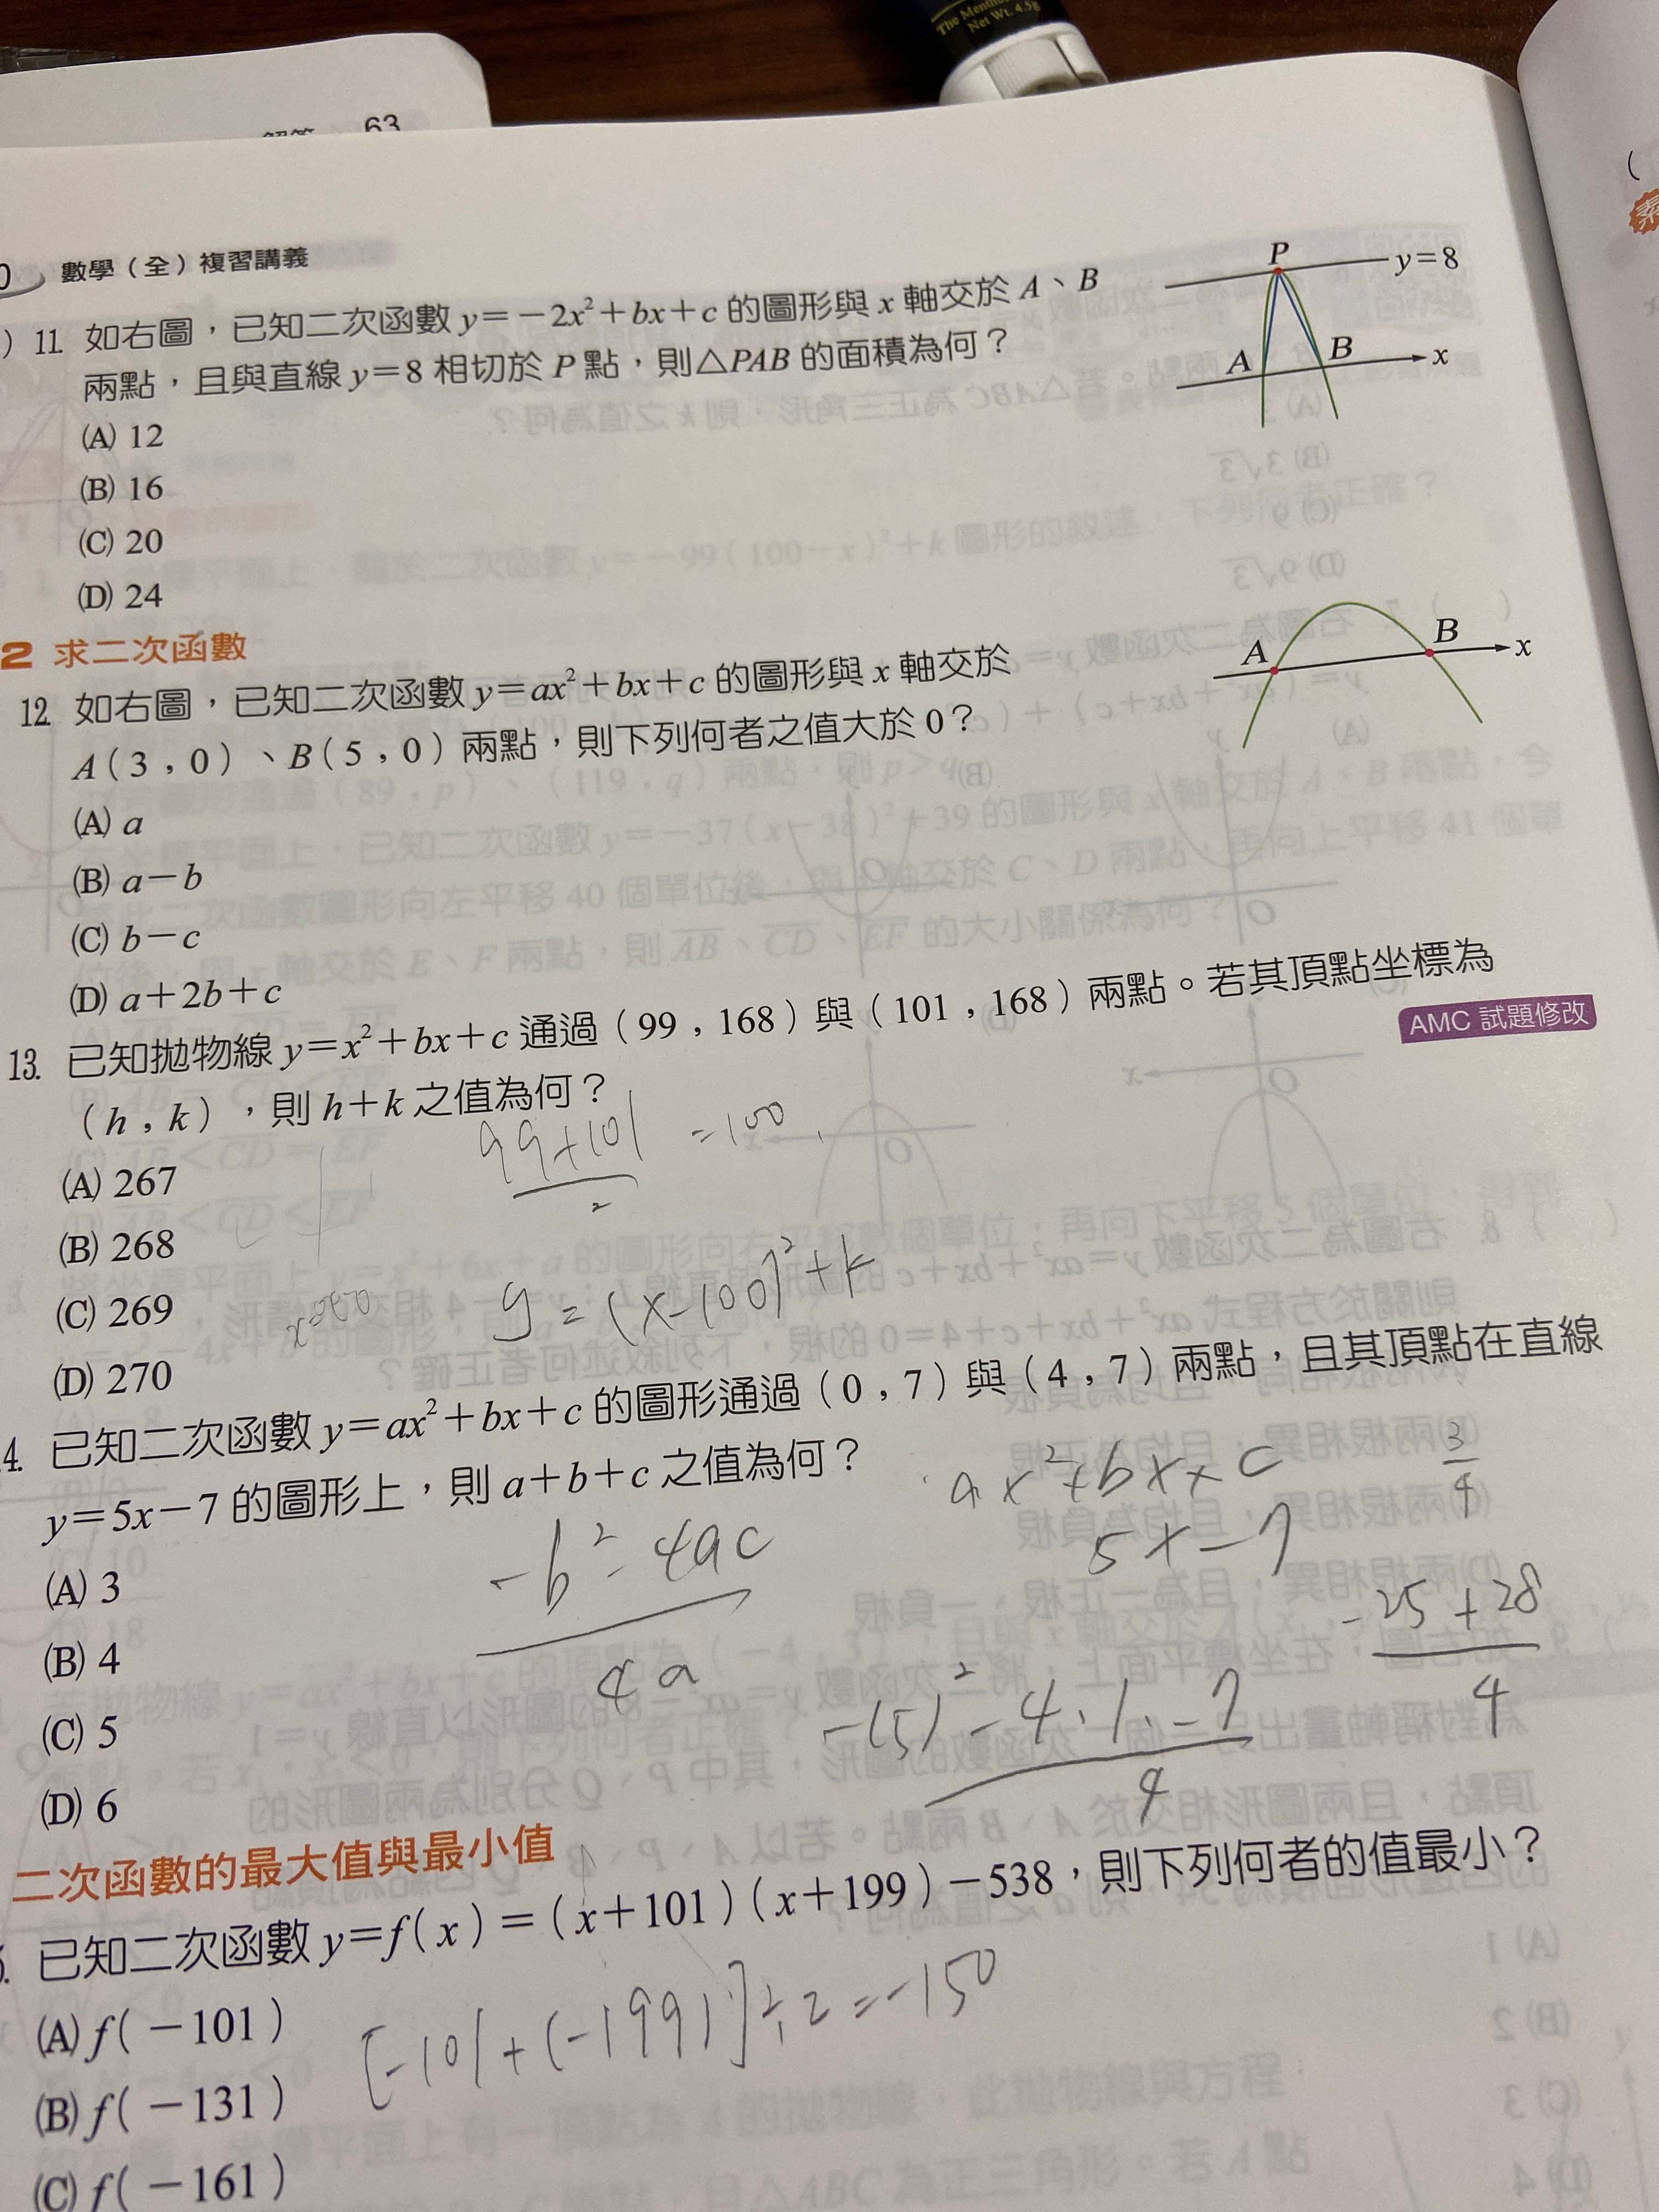 The Mentho
Net Wt. 4.5g
解答 63
數學（全）複習講義
) 11. 如右圖，已知二次函數 y＝－2x²＋bx＋c 的圖形與 x 軸交於 A、B
兩點，且與直線 y＝8 相切於 P 點，則△PAB 的面積為何？
(A) 12
(B) 16
(C) 20
(D) 24
P
y＝8
A
B
x
2 求二次函數
12. 如右圖，已知二次函數 y＝ax²＋bx＋c 的圖形與 x 軸交於
A（3，0）、B（5，0）兩點，則下列何者之值大於 0？
(A) a
(B) a－b
(C) b－c
(D) a＋2b＋c
A
B
x
13. 已知拋物線 y＝x²＋bx＋c 通過（99，168）與（101，168）兩點。若其頂點坐標為
（h，k），則 h＋k 之值為何？
AMC 試題修改
(A) 267
(B) 268
(C) 269
(D) 270
99+101
2
=100
y=(x-100)²+k
4. 已知二次函數 y＝ax²＋bx＋c 的圖形通過（0，7）與（4，7）兩點，且其頂點在直線
y＝5x－7 的圖形上，則 a＋b＋c 之值為何？
(A) 3
(B) 4
(C) 5
(D) 6
ax²+bx+c
5x-7
3
4
-b²-4ac
4a
-(5)²-4.1.-7
4
-25+28
4
二次函數的最大值與最小值
已知二次函數 y＝f(x)＝(x＋101)(x＋199)－538，則下列何者的值最小？
(A) f(－101)
(B) f(－131)
(C) f(－161)
[-101+(-199)]÷2=-150